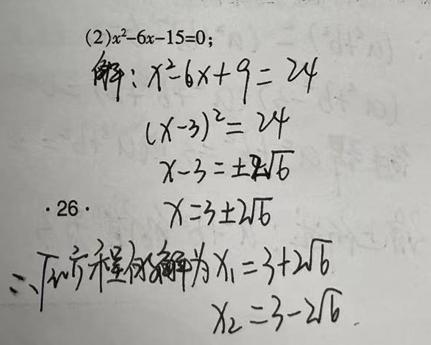 (2)x²-6x-15=0;
解：x²-6x+9=24
(x-3)²=24
x-3=±2√6
·26·
x=3±2√6
∴原方程的解为x₁=3+2√6
x₂=3-2√6.